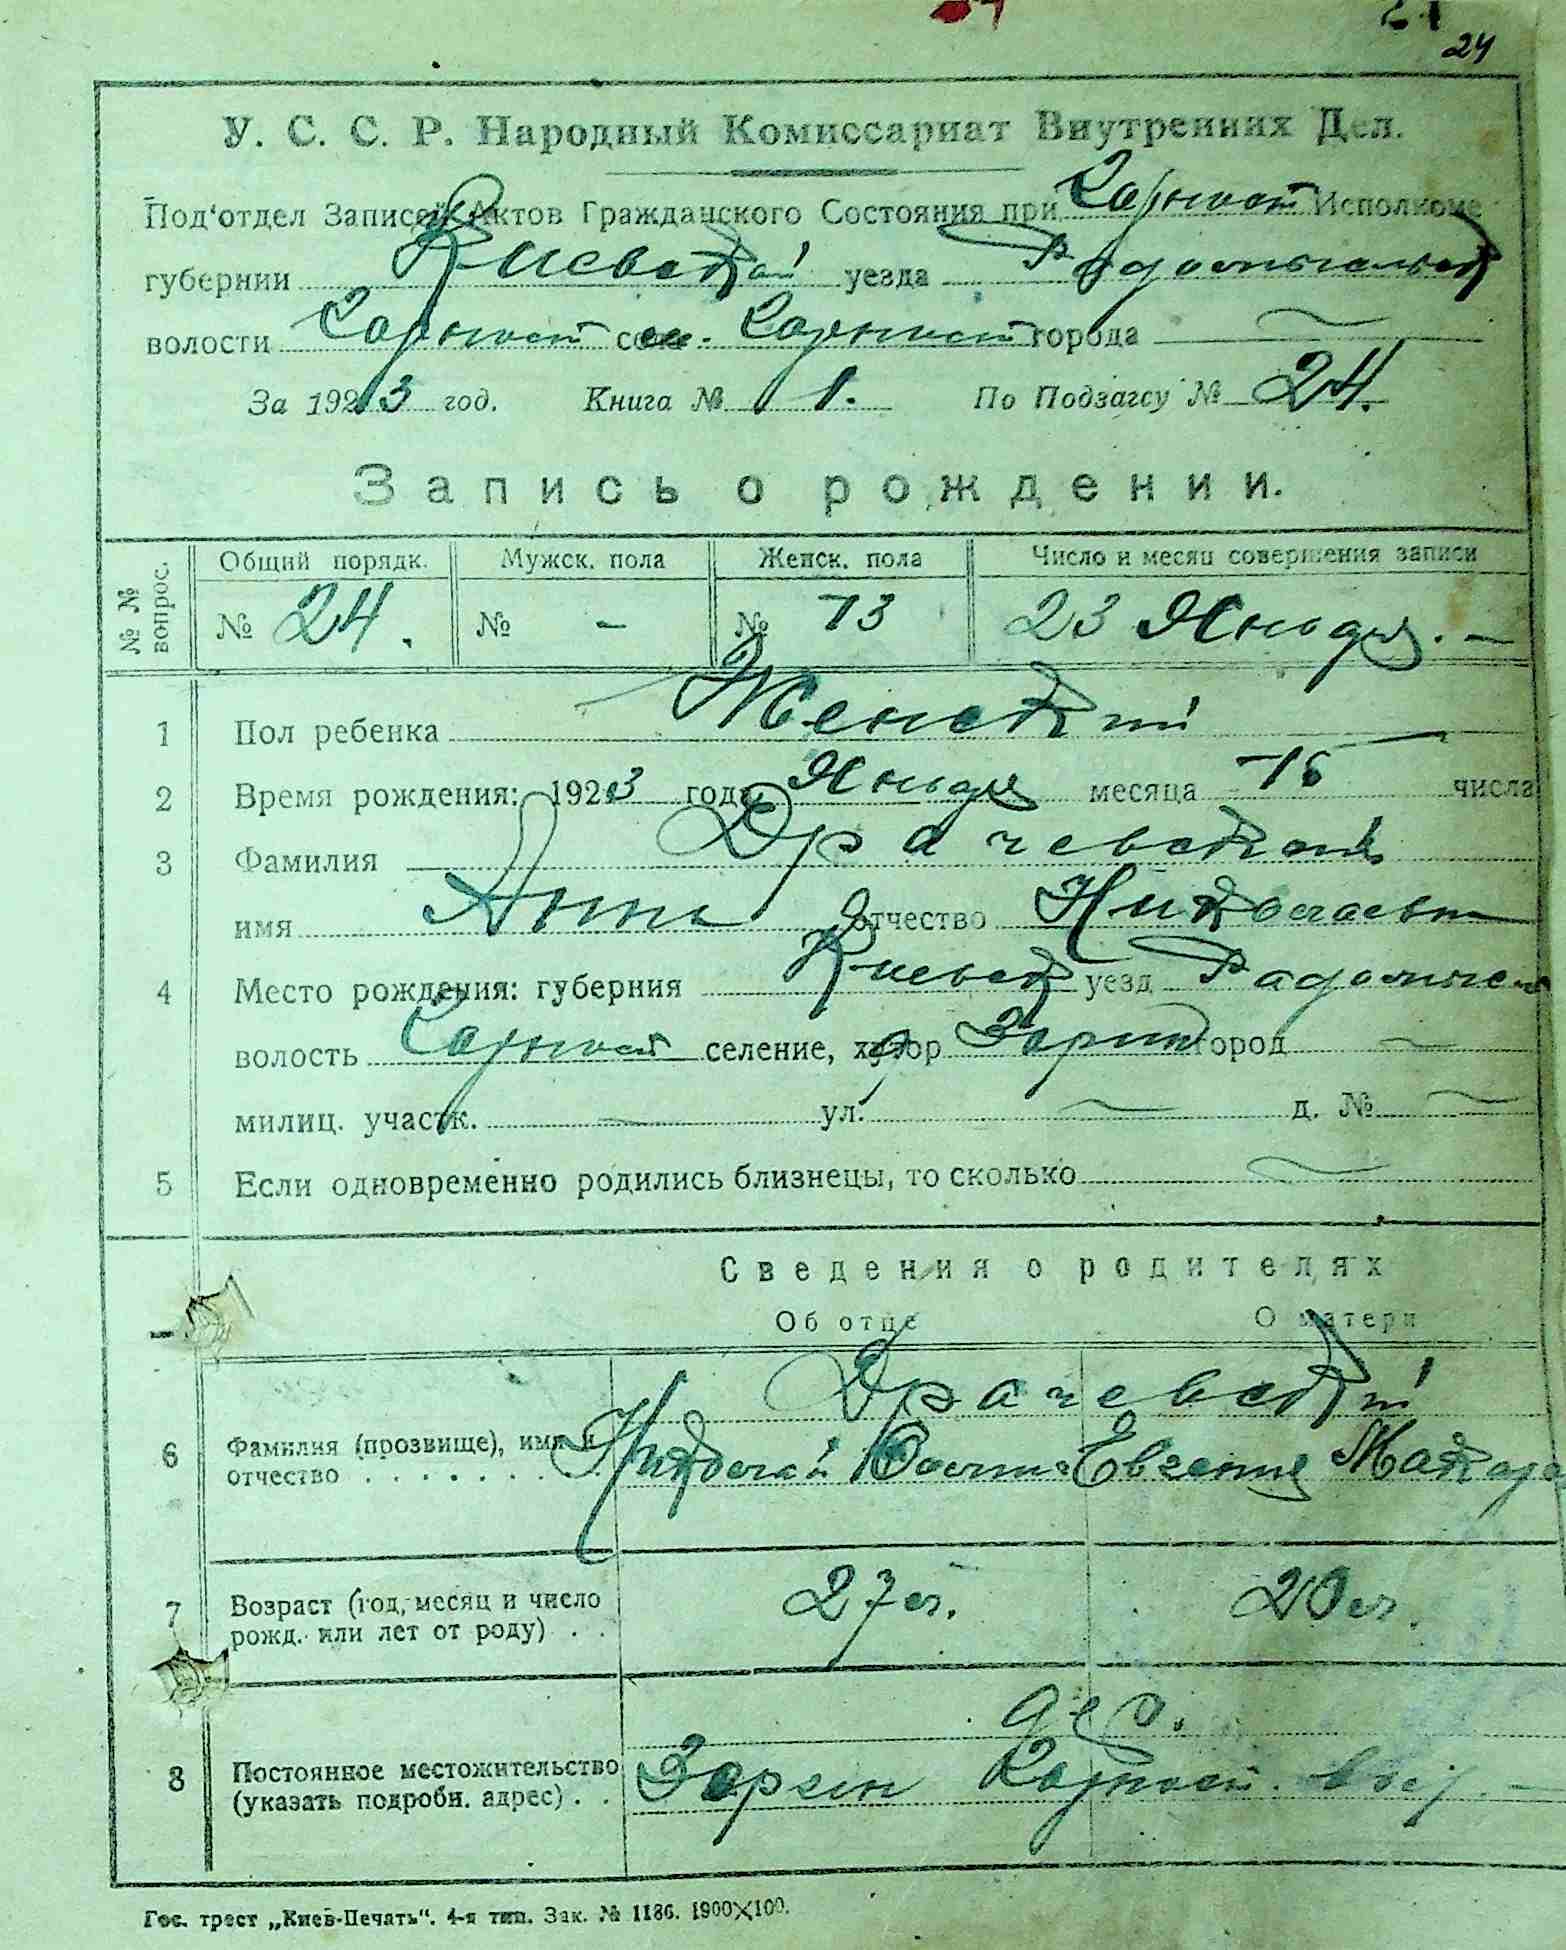 24
У. С. С. Р. Народный Комиссариат Внутренних Дел.
Под'отдел Записей Актов Гражданского Состояния при Исполкоме
губернии Киевской уезда Радомысльск
волости города
За 1923 год. Книга № 1. По Подзагсу № 24.
Запись о рождении.
№ № вопрос. Общий порядк. Мужск. пола Женск. пола Число и месяц совершения записи
№ 24. № - № 13 23 Январ. -
1 Пол ребенка Женский
2 Время рождения: 1923 года Январ месяца числа
3 Фамилия Драчевский
имя Анна отчество Николаевн
4 Место рождения: губерния Киевск уезд Радомысл
волость селение, хутор город
милиц. участк. ул. д. №
5 Если одновременно родились близнецы, то сколько
Сведения о родителях
Об отце О матери
Драчевский
6 Фамилия (прозвище), имя и
отчество . . . . . . . . . Николай Евгения
7 Возраст (год, месяц и число 27 л. 20 л.
рожд. или лет от роду) . .
дер.
8 Постоянное местожительство
(указать подробн. адрес) . .
Гос. трест „Киев-Печать“. 4-я тип. Зак. № 1186. 1900×100.